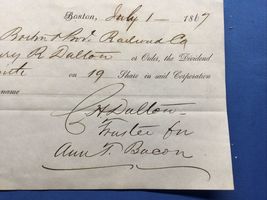 Boston, July 1 — 1867
Boston & Prov. Railroad Co
ry R Dalton or Order, the Dividend
on 19 Share in said Corporation
name
C H Dalton
Trustee for
Ann F. Bacon